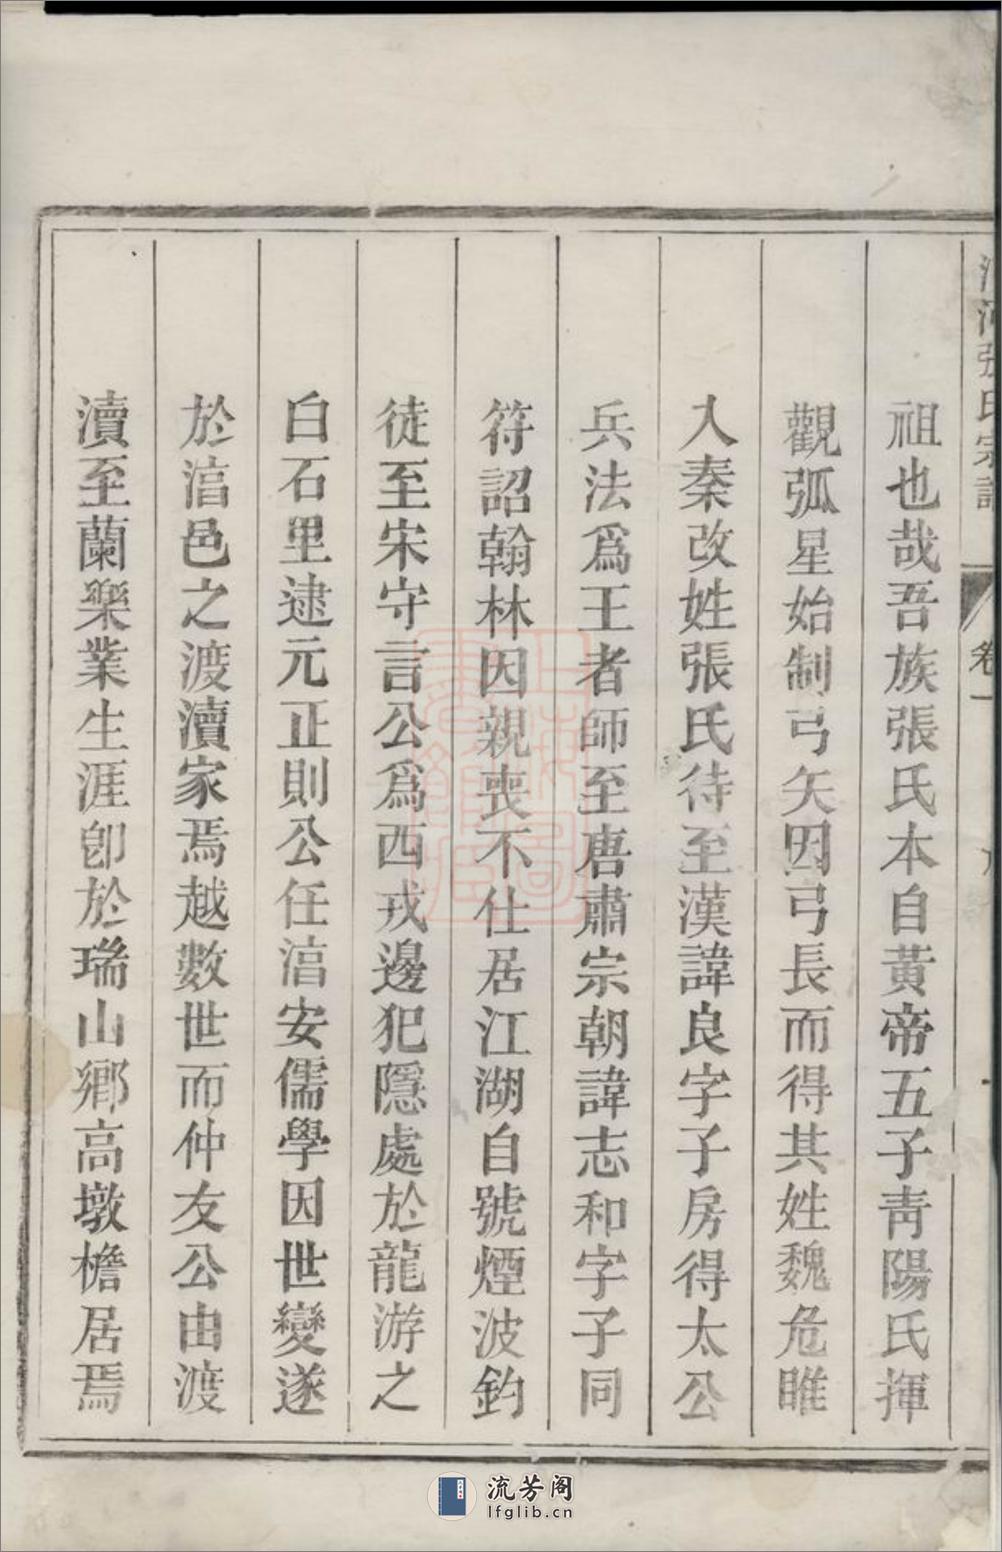 河張氏宗譜 卷一
祖也哉吾族張氏本自黃帝五子靑陽氏揮
觀弧星始制弓矢因弓長而得其姓魏危睢
人秦改姓張氏待至漢諱良字子房得太公
兵法爲王者師至唐肅宗朝諱志和字子同
符詔翰林因親喪不仕居江湖自號煙波釣
徒至宋守言公爲西戎邊犯隱處於龍游之
白石里逮元正則公任湻安儒學因世變遂
於湻邑之渡瀆家焉越數世而仲友公由渡
瀆至蘭樂業生涯卽於瑞山鄉高墩檐居焉
流芳阁
lfglib.cn